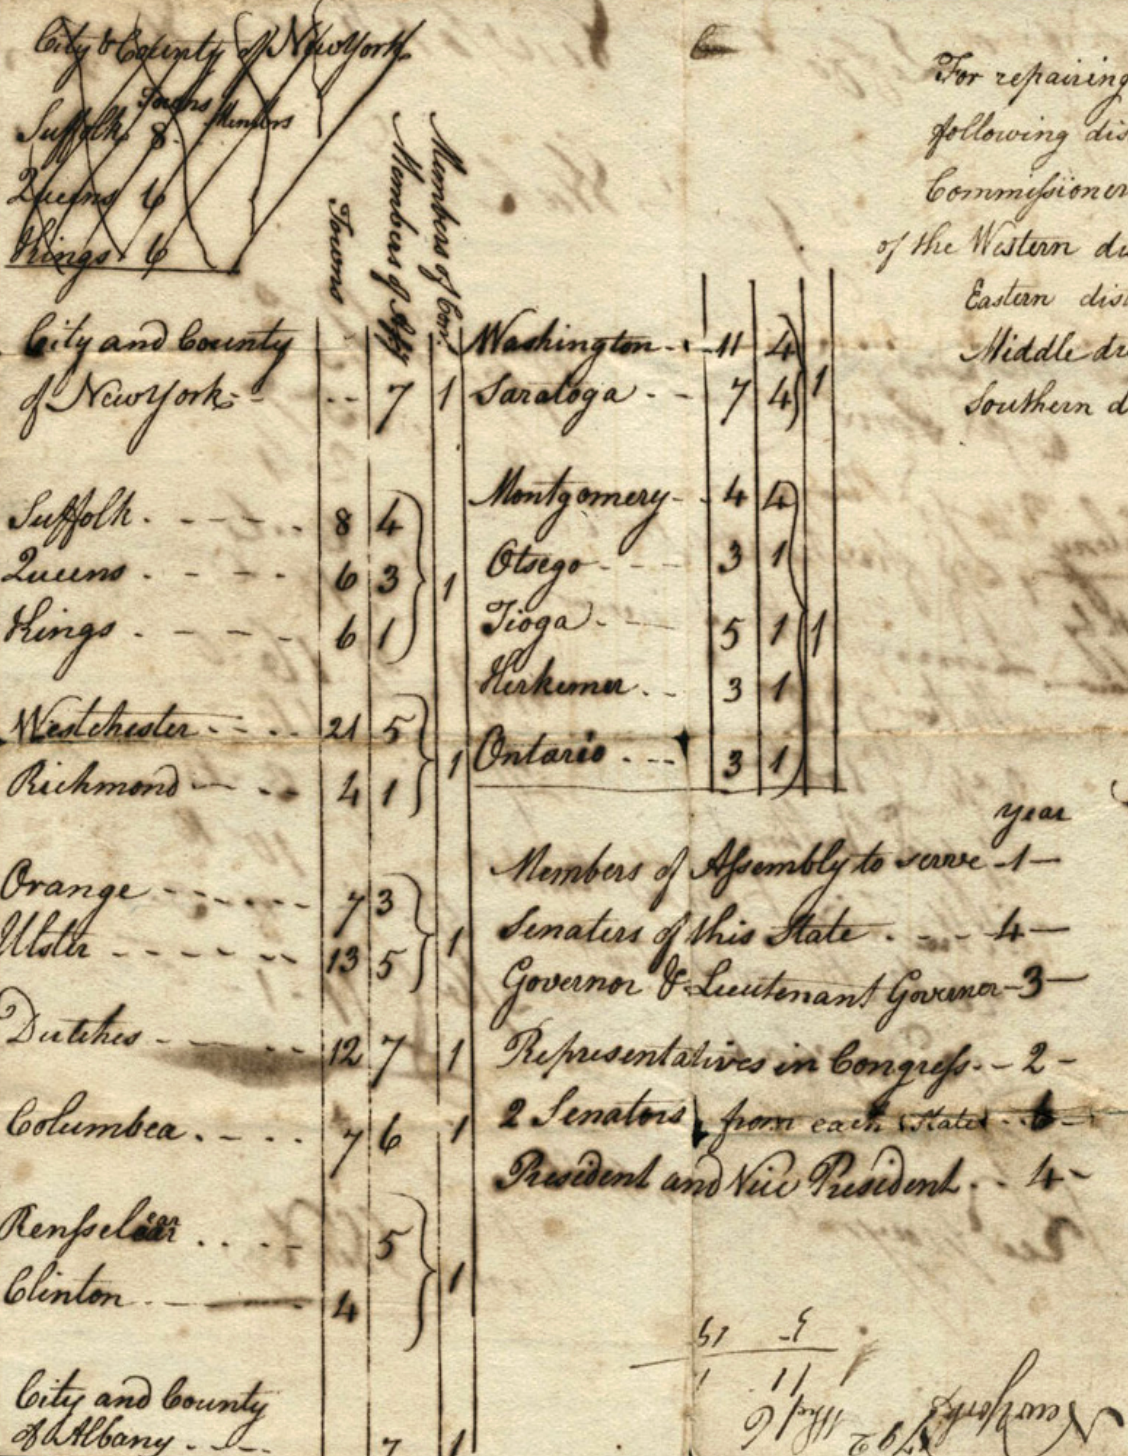 City & County of New York
Towns Members
Suffolk 8.
Queens 6
Kings 6
Towns
Members of Assy
Members of Con.
City and County
of New York - - - - 7 1
Suffolk. - - - - - 8 4
Queens . - - - 6 3 1
Kings . - - - - 6 1
Westchester. - - . . 21 5
Richmond - - . . 4 1 1
Orange - - - - - - 7 3
Ulster - - - - - - 13 5 1
Dutches - - - - 12 7 1
Columbea . - - . . . 7 6 1
Rensselear . . . - - 5
Clinton - - 4 1
City and County
of Albany - - - - 7 1
Washington - . - 11 4
Saratoga - - - 7 4 1
Montgomery - . 4 4
Otsego - - - 3 1
Tioga - - - 5 1 1
Herkemer . - 3 1
Ontario . - - - 3 1
year
Members of Assembly to serve - 1 -
Senaters of this State . - - - 4 -
Governor & Lieutenant Governor - 3 -
Representatives in Congress. - - 2 -
2 Senators from each State . . 6 -
President and Vice President . . 4 -
For repairing
following dis
Commissioner
of the Western di
Eastern dist
Middle di
Southern d
New York